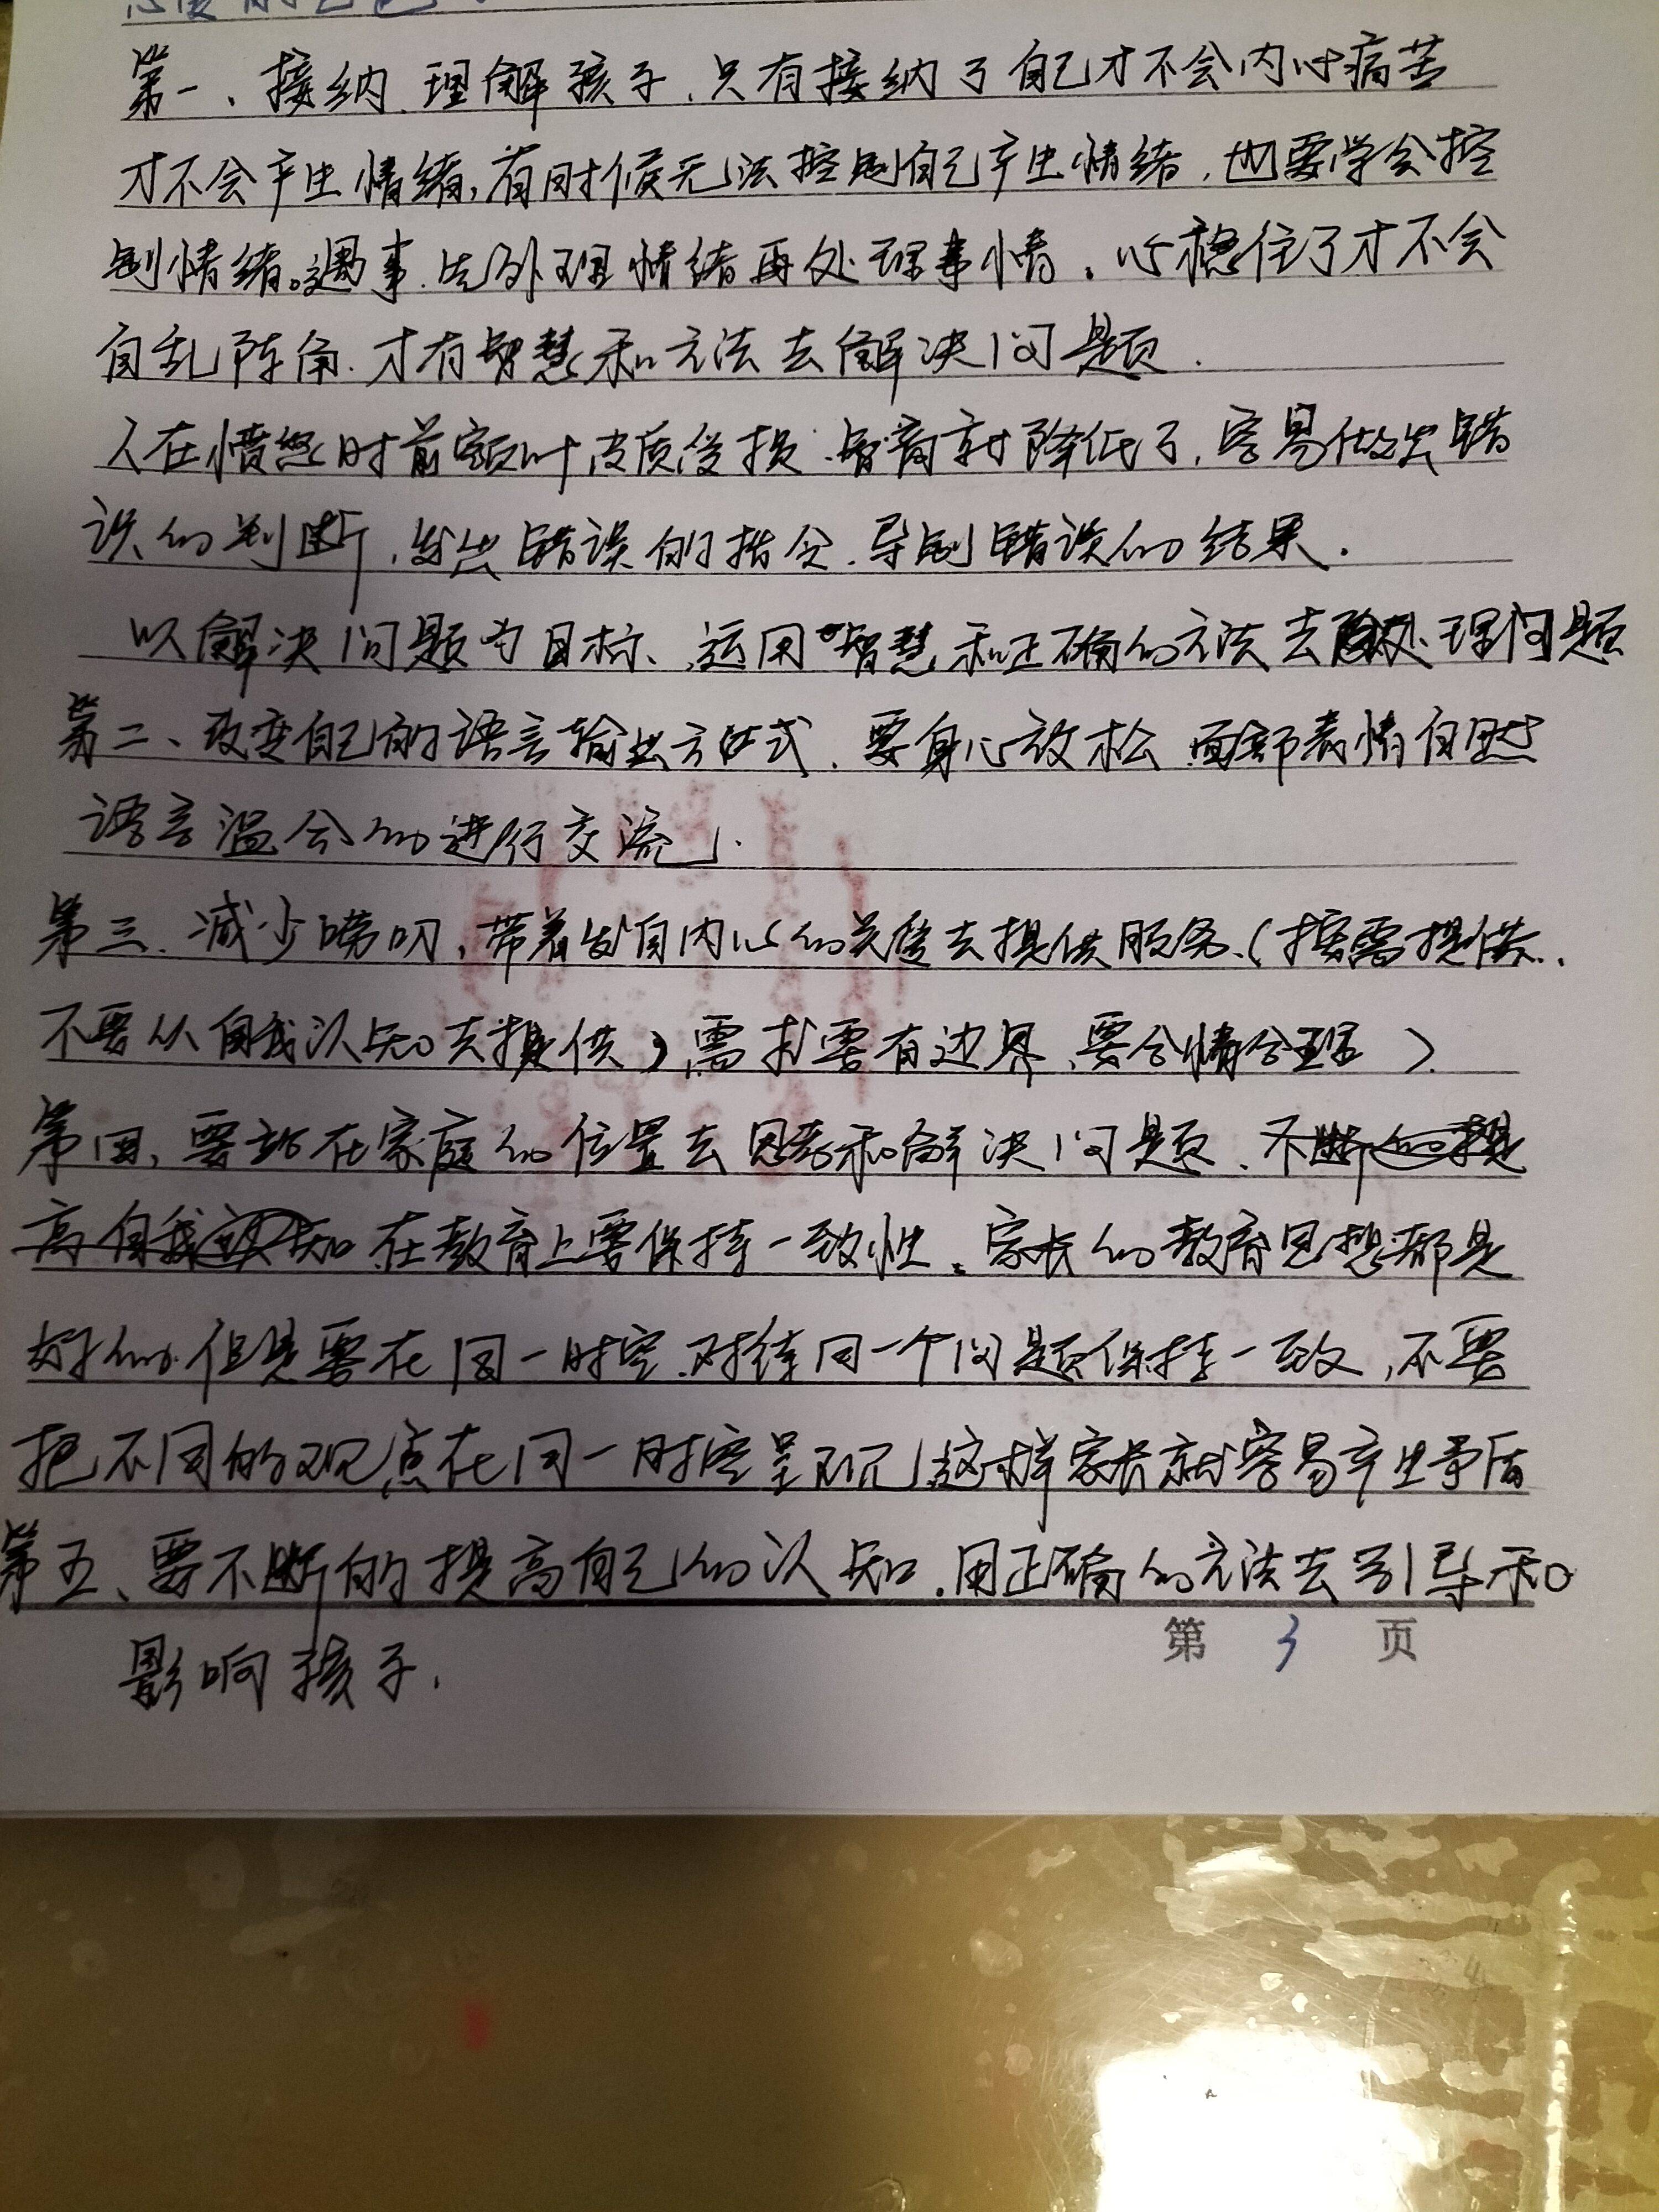 第一、接纳、理解孩子,只有接纳了自己才不会内心痛苦
才不会产生情绪,有时候无法控制自己产生情绪,也要学会控
制情绪。遇事先处理情绪再处理事情。心稳住了才不会
自乱阵角.才有智慧和方法去解决问题.
人在愤怒时前额叶皮质受损.智商就降低了,容易做出错
误的判断,发出错误的指令.导制错误的结果.
以解决问题为目标、运用智慧和正确的方法去处理问题
第二、改变自己的语言输出方式.要身心放松 面部表情自然
语言温会的进行交流.
第三.减少唠叨,带着发自内心的关爱去提供服务.(按需提供..
不要从自我认知去提供),需求要有边界、要合情合理).
第四,要站在家庭的位置去思考和解决问题、不断的提
高自我认知 在教育上要保持一致性。家长的教育思想都是
好的.但是要在同一时空.对待同一个问题保持一致,不要
把不同的观点在同一时空呈现,这样家长就容易产生矛盾
第五、要不断的提高自己的认知.用正确的方法去引导和
影响孩子.
第 3 页